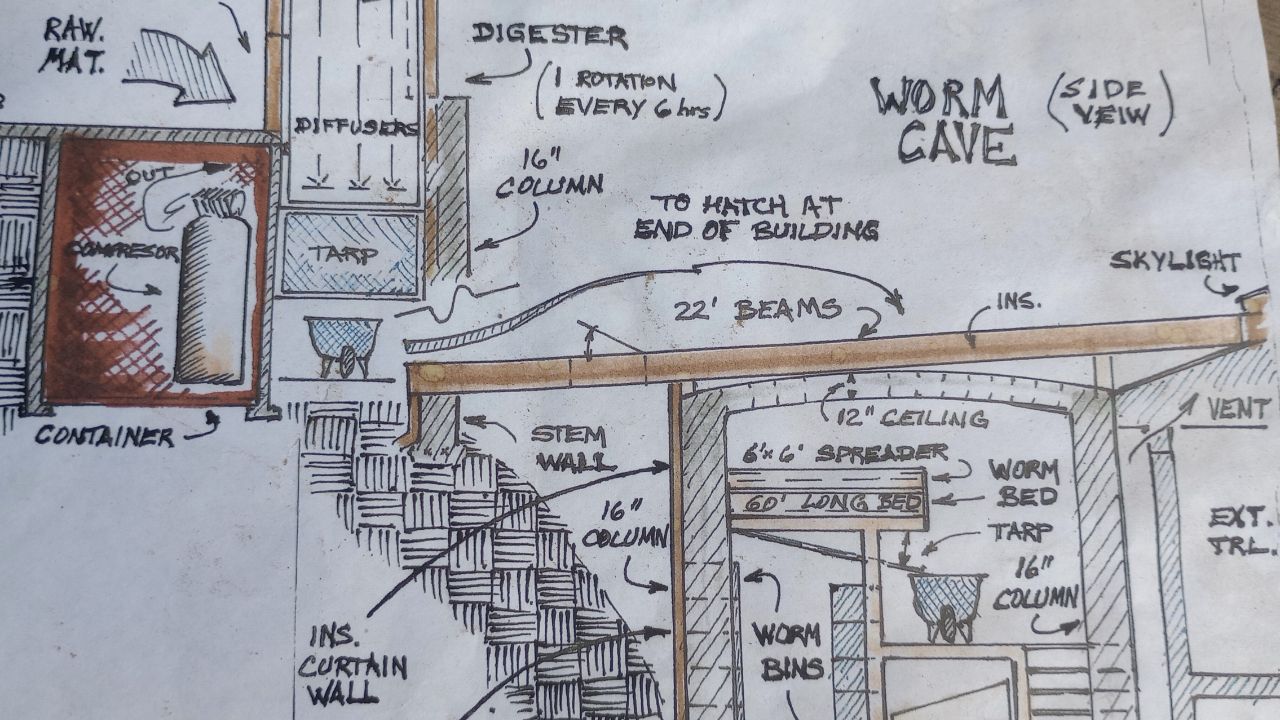 RAW.
MAT.
DIGESTER
(1 ROTATION
EVERY 6 hrs)
WORM
CAVE
(SIDE
VEIW)
DIFFUSERS
16"
COLUMN
OUT
COMPRESOR
TARP
TO HATCH AT
END OF BUILDING
SKYLIGHT
22' BEAMS
INS.
CONTAINER
STEM
WALL
12" CEILING
VENT
6'x6' SPREADER
WORM
BED
60' LONG BED
16"
COLUMN
TARP
EXT.
TRL.
16"
COLUMN
INS.
CURTAIN
WALL
WORM
BINS